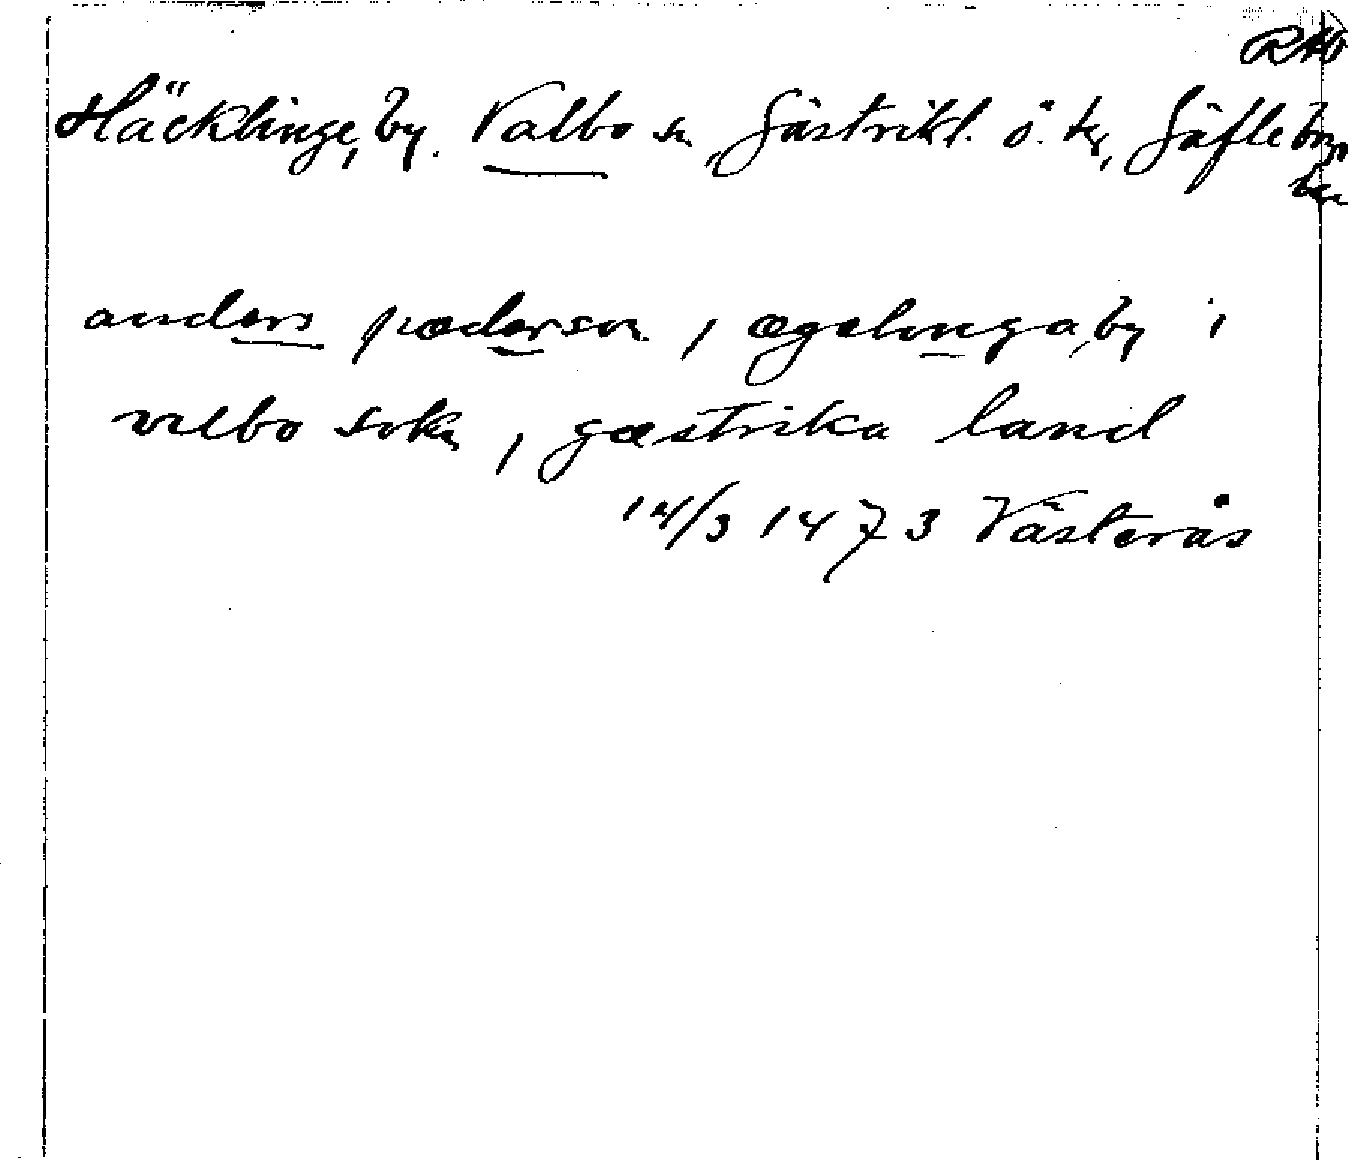 RAO
Häcklinge, by. Valbo sn, Gästrikl. ö. tg, Gäfleborgs
län
anders pæderson, i ægelunga, by i
valbo sokn, i gæstrika land
14/3 1473 Västerås